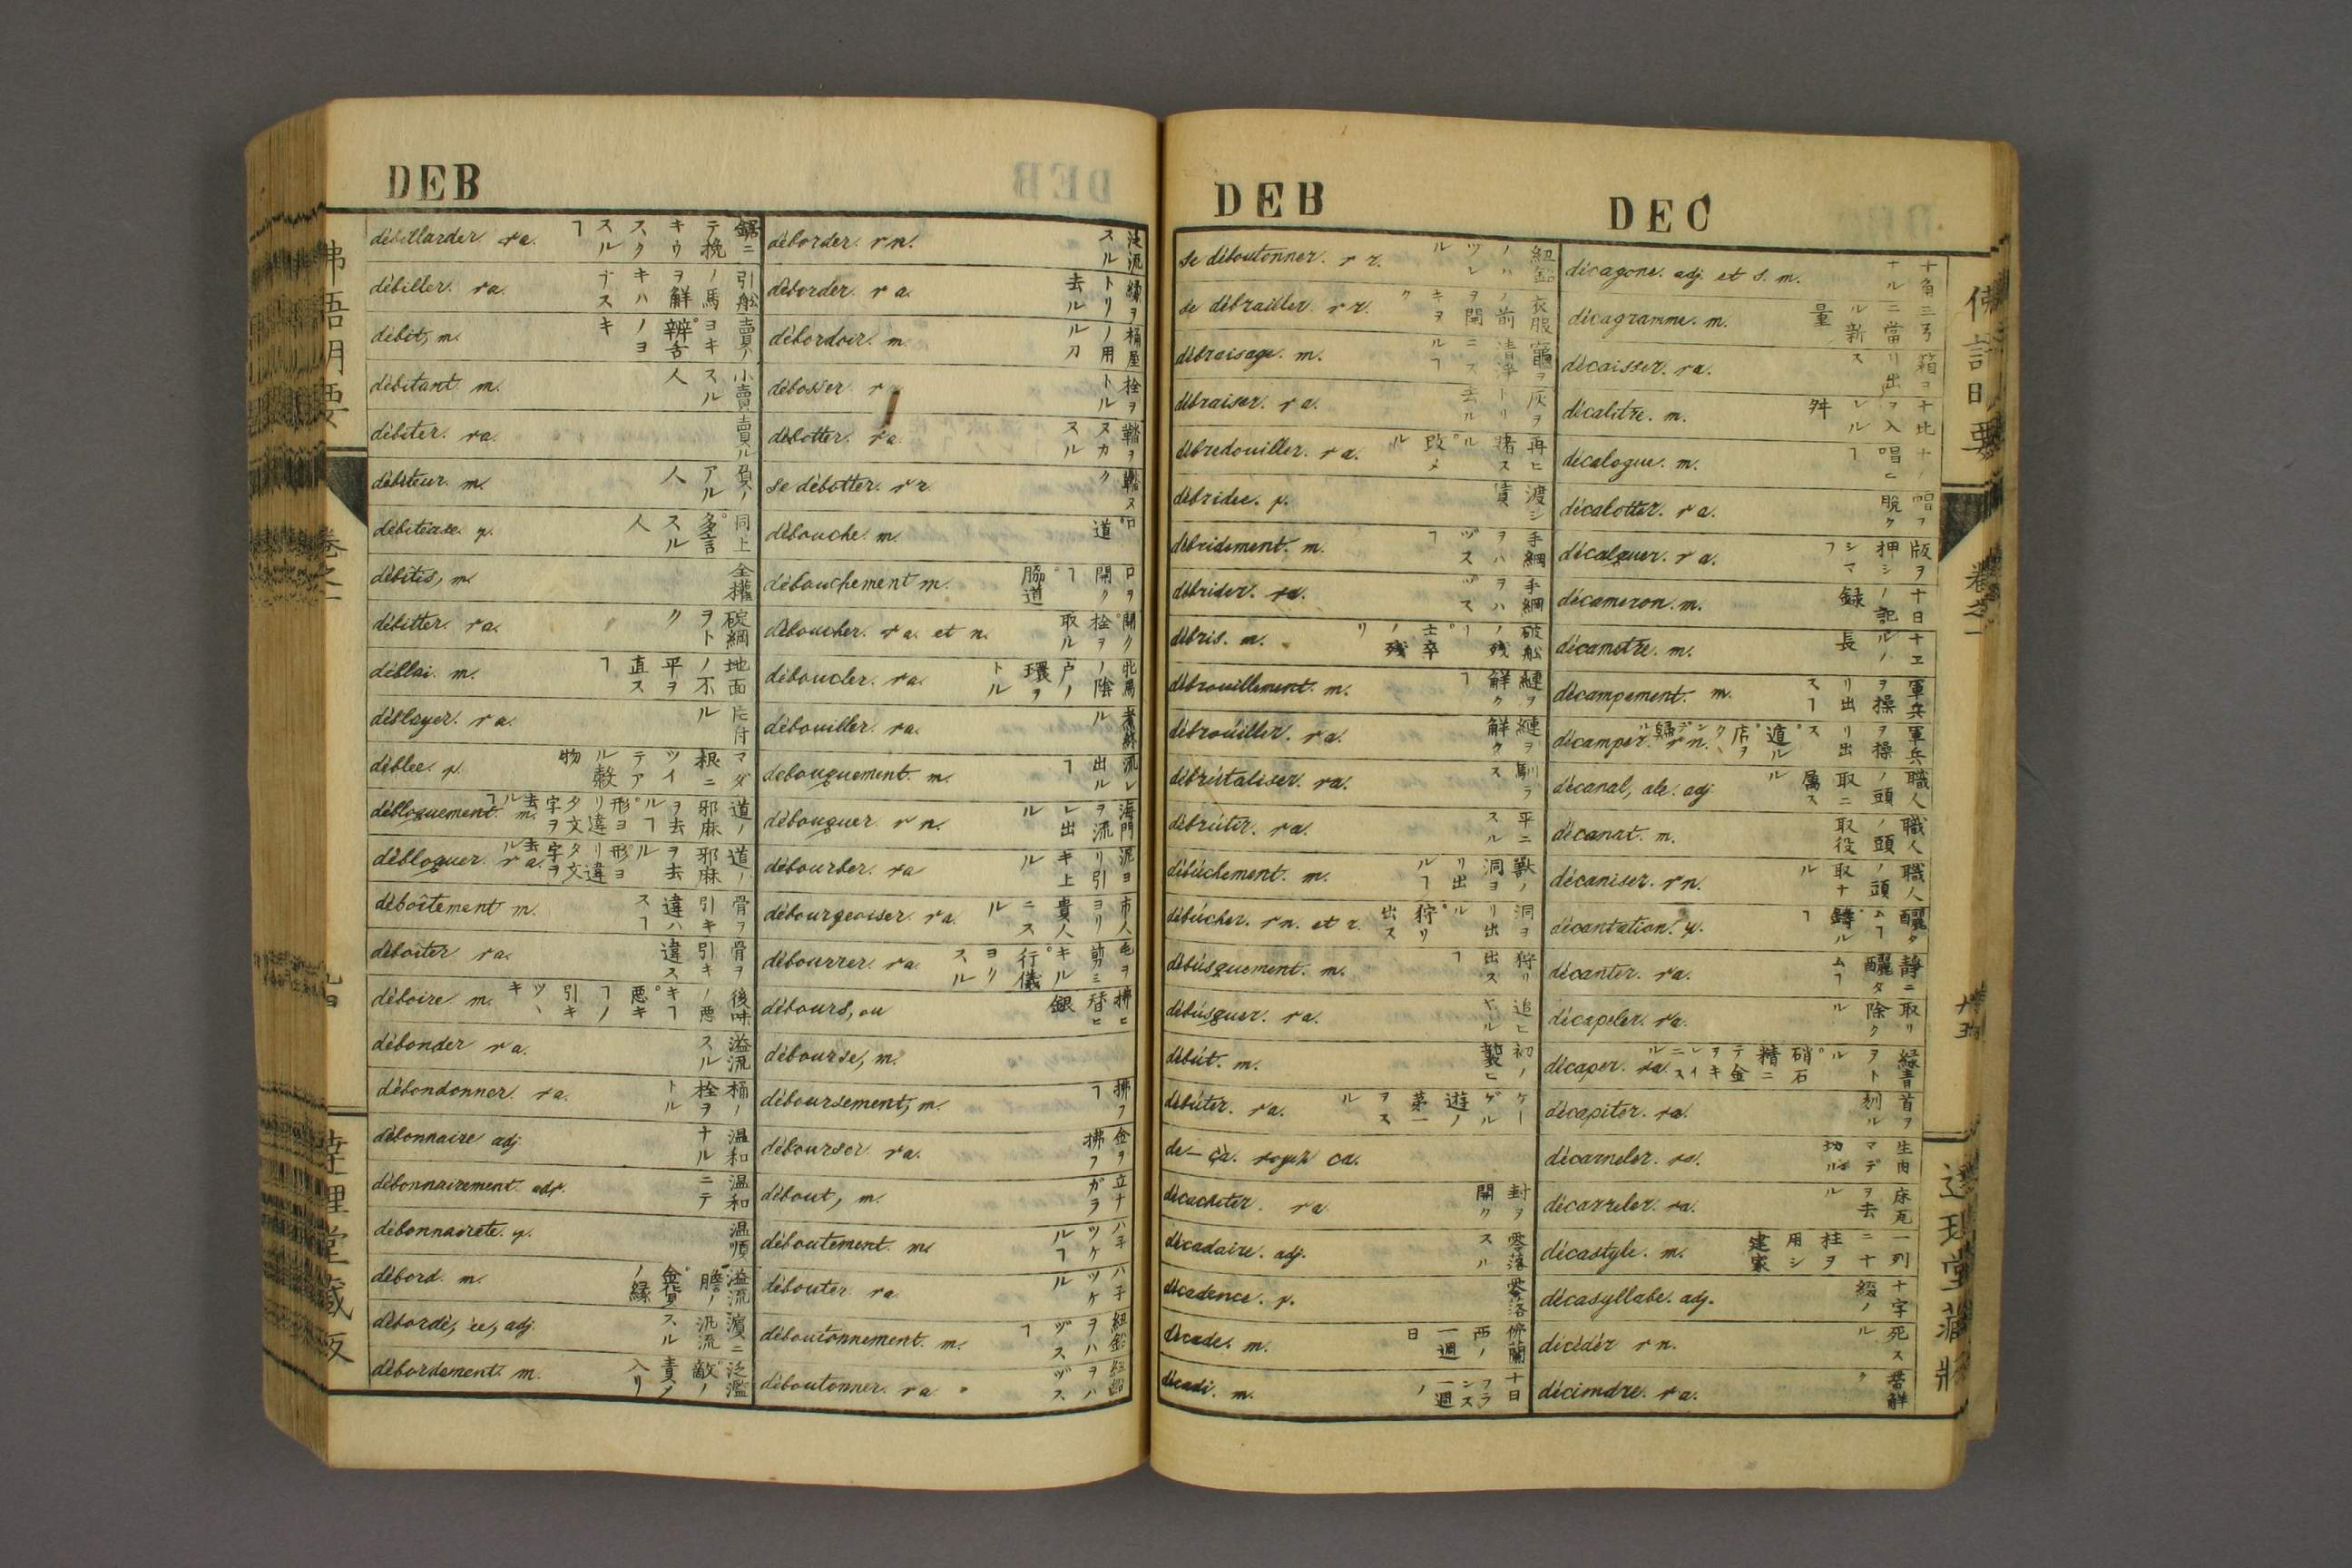 DEB
débillarder. va. 鋸ニテ挽キウスクスルヿ
débiller. va. 引舩ノ馬ヲ解キハナス
débit, m. 賣買ノヨキ 辨舌ノヨキ
débitant. m. 小賣スル人
débiter. va. 賣ル
débiteur. m. 負ノアル人
débiteuse. f. 同上 多言スル人
débitis, m. 全權
débitter. va. 碇綱ヲトク
déblai. m. 地面ノ不平ヲ直スヿ
déblayer. va. 片付ル
déblée. f. マダ根ニツイテアル穀物
débloquement. m. 道ノ邪麻ヲ去ルヿ 形ヨリ違タ文字ヲ去ルヿ
débloquer. va. 道ノ邪麻ヲ去ル 形ヨリ違タ文字ヲ去ル
déboîtement m. 骨ヲ引キ違ハスヿ
déboîter va. 骨ヲ引キ違ス
déboire m. 後味ノ悪キヿ
débonder va. 溢流スル
débondonner. va. 桶ノ栓ヲトル
débonnaire adj. 温和ナル
débonnairement. adv. 温和ニテ
débonnaireté. f. 温順
débord. m. 溢流 膽ノ 金貨ノ縁
débordé, ée, adj. 濵ニ汎流スル
débordement. m. 泛濫 敵ノ責メ入リ
déborder. vn. 泛流スル
déborder. va. 縁ヲトリ去ル
débordoir. m. 桶屋ノ用ル刀
débosser. v 栓ヲトル
débotter. va. 鞜ヲヌカスル
se débotter. vr. 鞜ヌク
débouché. m. 口 道
débouchement m. 口ヲ開クヿ 脇道
déboucher. va. et n. 開ク 栓ヲ取ル
déboucler. va. 牝馬ノ陰戸ノ環ヲトル
débouiller. va.
débouquement. m. 流レ出ルヿ
débouquer. vn. 海門ヲ流レ出ル
débourber. va 泥ヨリ引キ上ル
débourgeoiser. va. 市人ヨリ貴人ニスル
débourrer. va. 毛ヲ剪ミキル 行儀ヨリスル
débours, ou 拂ヒ替ヒ銀
débourse, m.
déboursement, m. 拂フヿ
débourser. va. 金ヲ拂フ
débout, m. 立ナガラ
déboutement. m. ハ子ツケルヿ
débouter. va. ハ子ツケル
déboutonnement. m. 紐釦ヲハヅスヿ
déboutonner. va. 紐釦ヲハヅス
DEB
DEC
se déboutonner. vr. 紐釦ノハヅレル
se débrailler. vr. 衣服ノ前ヲ開キヲク
débraisage. m. 竈ヲ清浄ニスルヿ
débraiser. va. 灰ヲトリ去ル
débredouiller. va. 再ヒ賭スル 改メル
débridée. f. 渡シ賃
débridement. m. 手綱ヲハヅスヿ
débrider. va. 手綱ヲハヅス
débris. m. 破舩ノ残リ 士卒ノ残リ
débrouillement. m. 縺ヲ解クヿ
débrouiller. va. 縺ヲ解ク
débrutaliser. va. 馴ラス
débrutir. va. 平ニスル
débûchement. m. 獸ノ洞ヨリ出ルヿ
débûcher. vn. et r. 洞ヲリ出ル 狩リ出ス
débusquement. m. 狩リ出スヿ
débusquer. va. 追ヒヤル
début. m. 初ノ襲ヒ
débuter. va. ゲールノ遊第一ヲスル
de-çà. voyez ça.
décacheter. va 封ヲ開ク
décadaire. adj. 零落スル
décadence. f. 零落
décade. m. 佛蘭西ノ一週日
décadi. m. 十日 フランスノ一週
décagone. adj. et s. m. 十角ナル
décagramme. m. 三弓ニ當ル新量
décaisser. va. 箱ヨリ出ス
décalitre. m. 十ヲ入レル舛
décalogue. m. 十ノ唱ヒヿ
décalotter. va. 帽ヲ脱ク
décalquer. va. 版ヲ押シシマヿ
décameron. m. 十日ノ記録
décamètre. m. 十エルノ長
décampement. m. 軍兵ヲ操リ出スヿ
décamper. vn. 軍兵ヲ操リ出ス
décanal, ale. adj. 職人ノ頭取ニ属スル
décanat. m. 職人ノ頭取役
décaniser. vn. 職人ノ頭取ナル
décantation. f. 釃タムヿ 鋳ルヿ
décanter. va. 静ニ釃タムヿ
décapeler. va. 取リ除クル
décaper. va. 緑青ヲトル
décapiter. va. 首ヲ刎ル
décarneler. va. 生肉マデ切ル
décarreler. va. 床瓦ヲ去ル
décastyle. m. 一列ニ十柱ヲ用シ建家
décasyllabe. adj. 十字綴ノ
décéder vn. 死スル
décimdre. va.
卷之一